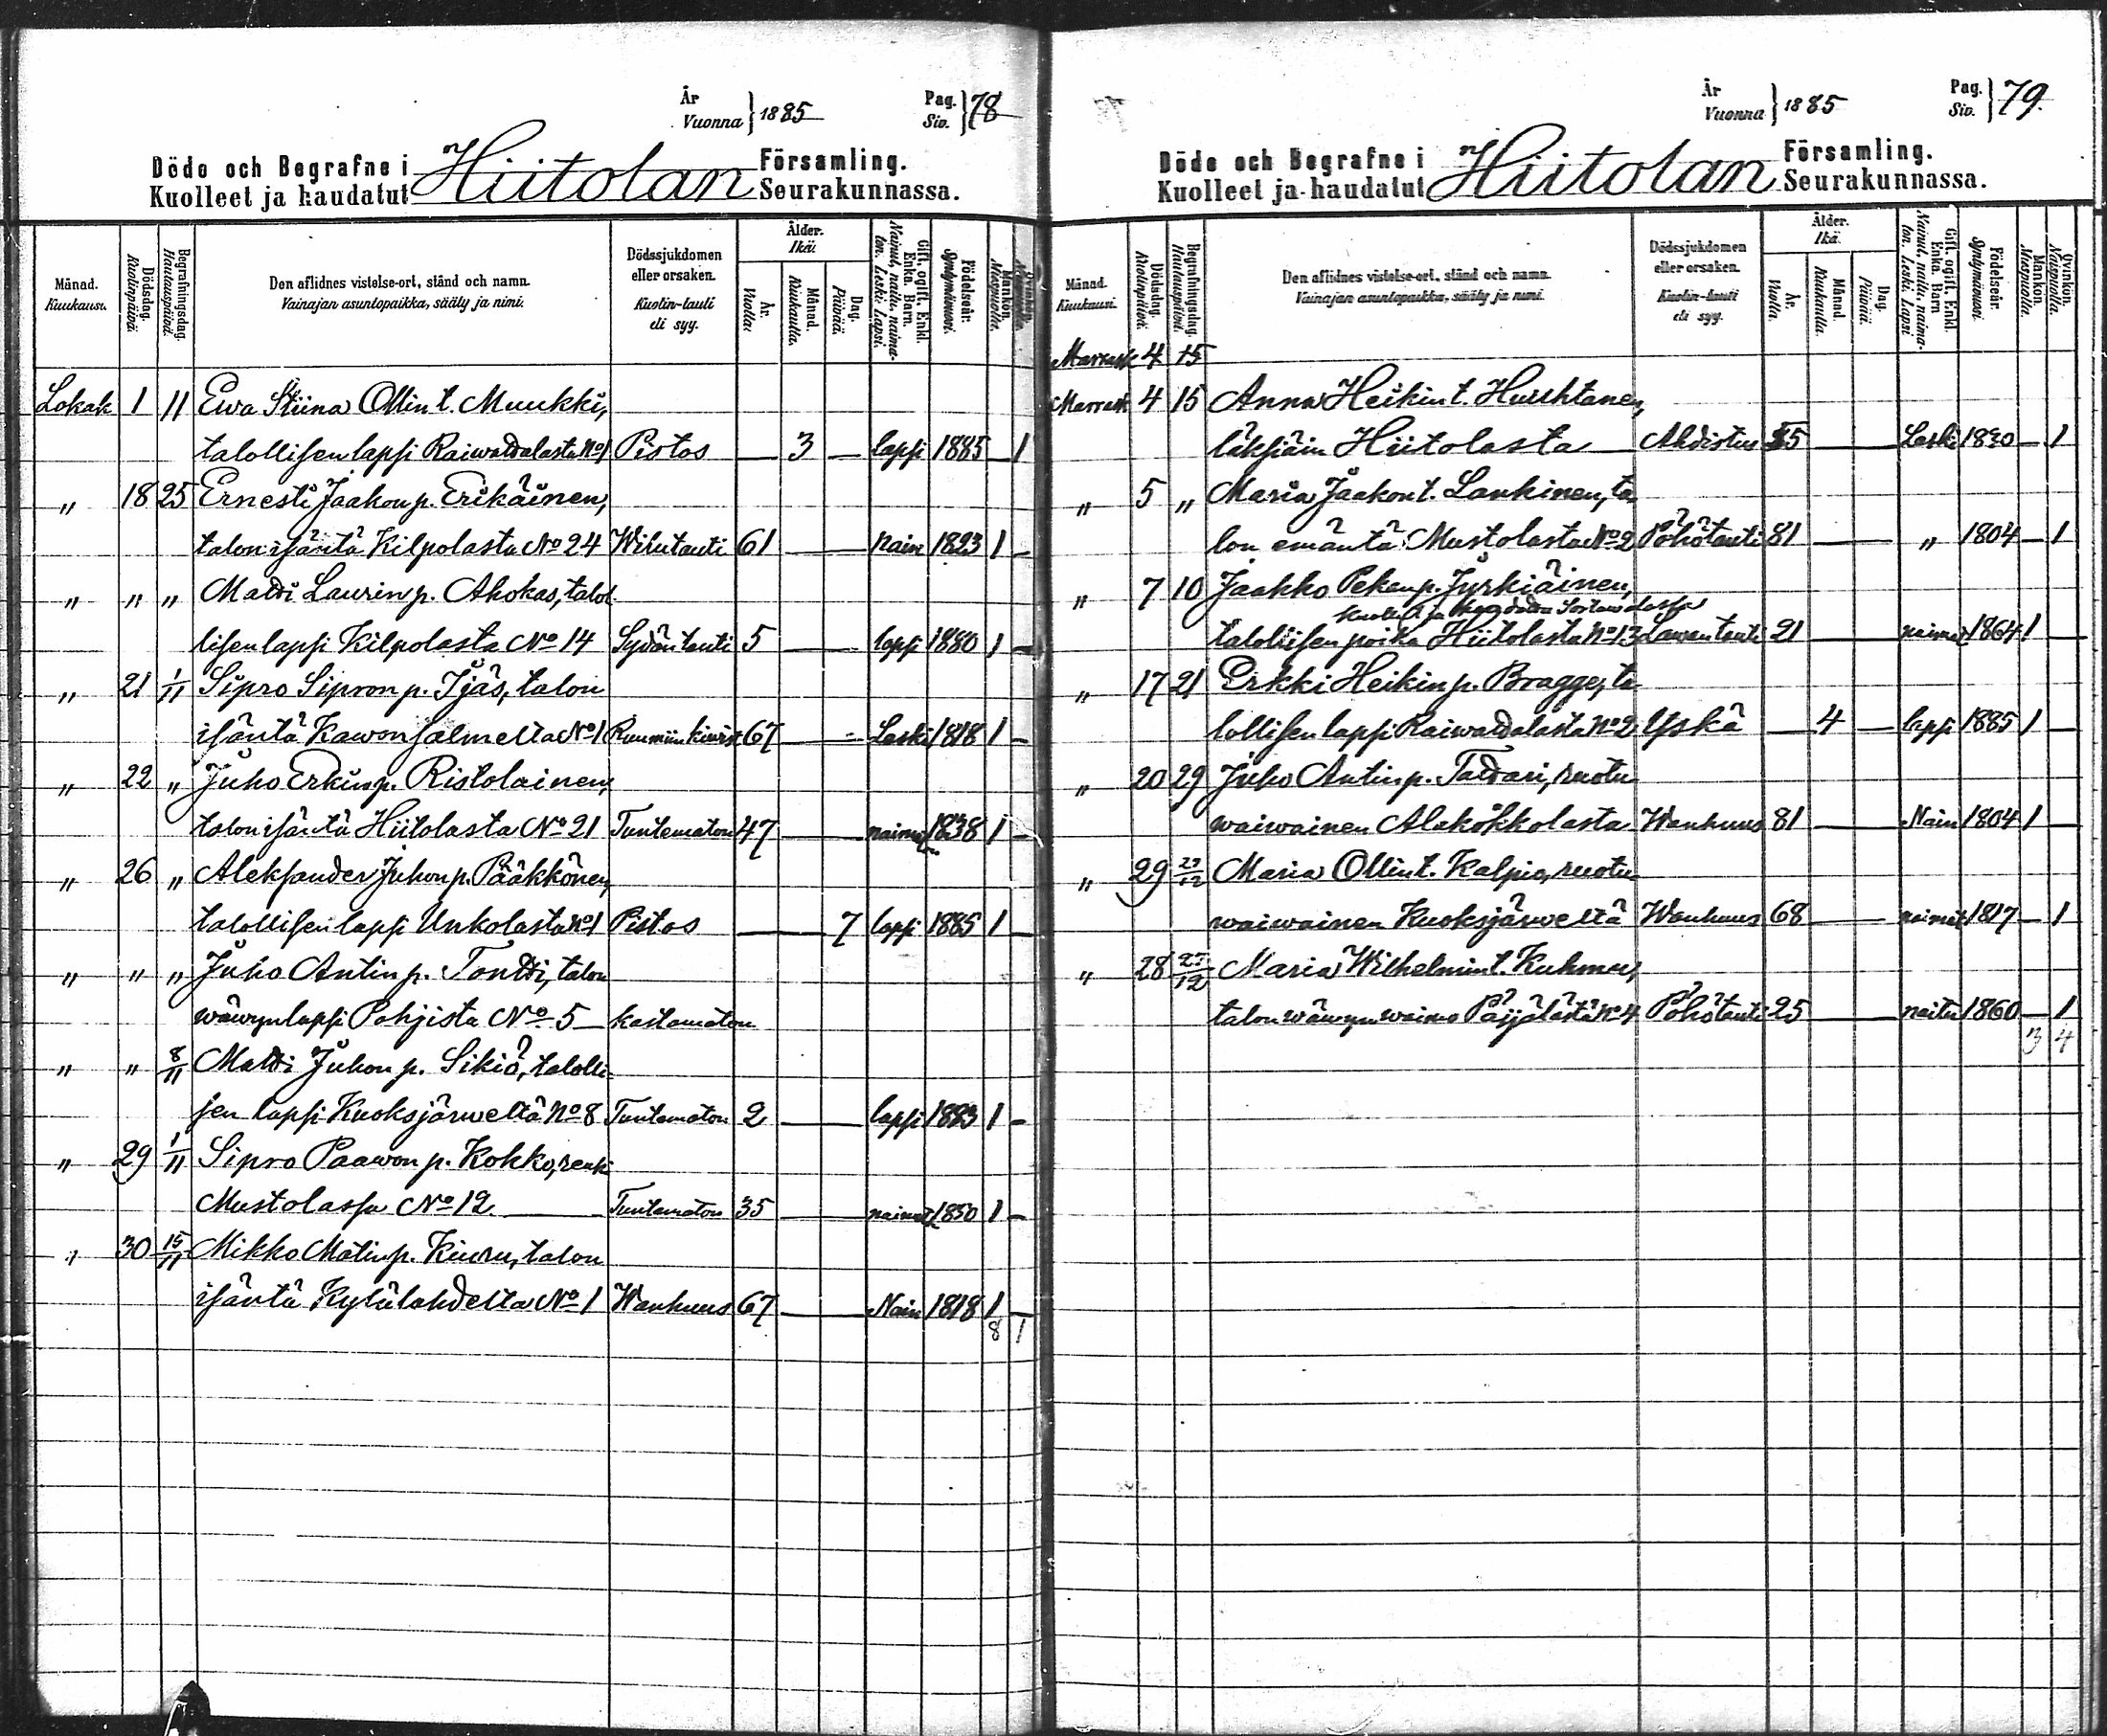 År
Vuonna } 1885
Pag.
Siv. } 78
Döde och Begrafne i
Kuolleet ja haudatut
Hiitolan
Församling.
Seurakunnassa.
Månad.
Kuukausi.
Dödsdag.
Kuolinpäivä.
Begrafningsdag.
Hautauspäivä.
Den aflidnes vistelse-ort, stånd och namn.
Vainajan asuntopaikka, sääty ja nimi.
Dödssjukdomen
eller orsaken.
Kuolin-tauti
eli syy.
Ålder.
Ikä:
År.
Vuotta.
Månad.
Kuukautta.
Dag.
Päivää.
Gift, ogift, Enkl.
Enka. Barn.
Nainut, naitu, naima-
ton. Leski. Lapsi.
Födelseår.
Syntymävuosi.
Mankön.
Miespuolia.
Qvinkön.
Naispuolia.
Lokak 1 11 Ewa Stiina Ollin t. Muukki,
talollisen lapsi Raiwattalasta No 1 Pistos — 3 — lapsi 1885 — 1
„ 18 25 Ernesti Jaakon p. Eräkäinen,
talon isäntä Kilpolasta No 24 Wilutauti 61 — nain 1823 1 —
„ „ „ Matti Laurin p. Ahokas, talol
lisen lapsi Kilpolasta No 14 Sydäntauti 5 — lapsi 1880 1 —
„ 21 1/11 Sipro Sipron p. Ijäs, talon
isäntä Kawonsalmelta No 1 67 — Leski 1818 1 —
„ 22 „ Juho Erkin p. Ristolainen,
talon isäntä Hiitolasta No 21 Tuntematon 47 — naimat 1838 1 —
„ 26 „ Aleksander Juhon p. Pääkkönen,
talollisen lapsi Unkolasta No 1 Pistos — 7 lapsi 1885 1 —
„ „ „ Juho Antin p. Tontti, talon
wäwyn lapsi Pohjista No 5 — kastamaton
„ „ 8/11 Matti Juhon p. Sikiö, talolli-
sen lapsi Kuoksjärweltä No 8 Tuntematon 2 — lapsi 1883 1 —
„ 29 1/11 Sipro Paawon p. Kokko, renki
Mustolassa No 12 — Tuntematon 35 — naimat 1850 1 —
„ 30 15/11 Mikko Matin p. Kiuru, talon
isäntä Kylälahdelta No 1 Wanhuus 67 — Nain 1818 1 —
8 1
År
Vuonna } 1885
Pag.
Siv. } 79.
Döde och Begrafne i
Kuolleet ja haudatut
Hiitolan
Församling.
Seurakunnassa.
Månad.
Kuukausi.
Dödsdag.
Kuolinpäivä.
Begrafningsdag.
Hautauspäivä.
Den aflidnes vistelse-ort, stånd och namn.
Vainajan asuntopaikka, sääty ja nimi.
Dödssjukdomen
eller orsaken.
Kuolin-tauti
eli syy.
Ålder.
Ikä.
År.
Vuotta.
Månad.
Kuukautta.
Dag.
Päivää.
Gift, ogift, Enkl.
Enka. Barn
Nainut, naitu, naima-
ton. Leski. Lapsi
Födelseår.
Syntymävuosi.
Mankön.
Miespuolia.
Qvinkön.
Naispuolia.
Marrask 4 15
Marrask 4 15 Anna Heikin t. Huuhtanen,
läksiäin Hiitolasta Ahdistus 55 — Leski 1830 — 1
„ 5 „ Maria Jaakon t. Lankinen, ta
lon emäntä Mustolasta No 2 Pöhötauti 81 — „ 1804 — 1
„ 7 10 Jaakko Pekan p. Jyrkiäinen,
kuollut ja haudattu Sortawalassa
talollisen poika Hiitolasta No 13 Lawantauti 21 — naimat 1864 1 —
„ 17 21 Erkki Heikin p. Bragge, ta
lollisen lapsi Raiwattalasta No 2 Yskä — 4 — lapsi 1885 1 —
„ 20 29 Juho Antin p. Tattari, ruotu
waiwainen Alakökkolasta Wanhuus 81 — Nain 1804 1 —
„ 29 27/12 Maria Ollin t. Kalpio, ruotu
waiwainen Kuoksjärweltä Wanhuus 68 — naimat 1817 — 1
„ 28 27/12 Maria Wilhelmin t. Kuhmo,
talon wäwyn waimo No 4 Pöhötauti 25 — naitu 1860 — 1
3 4